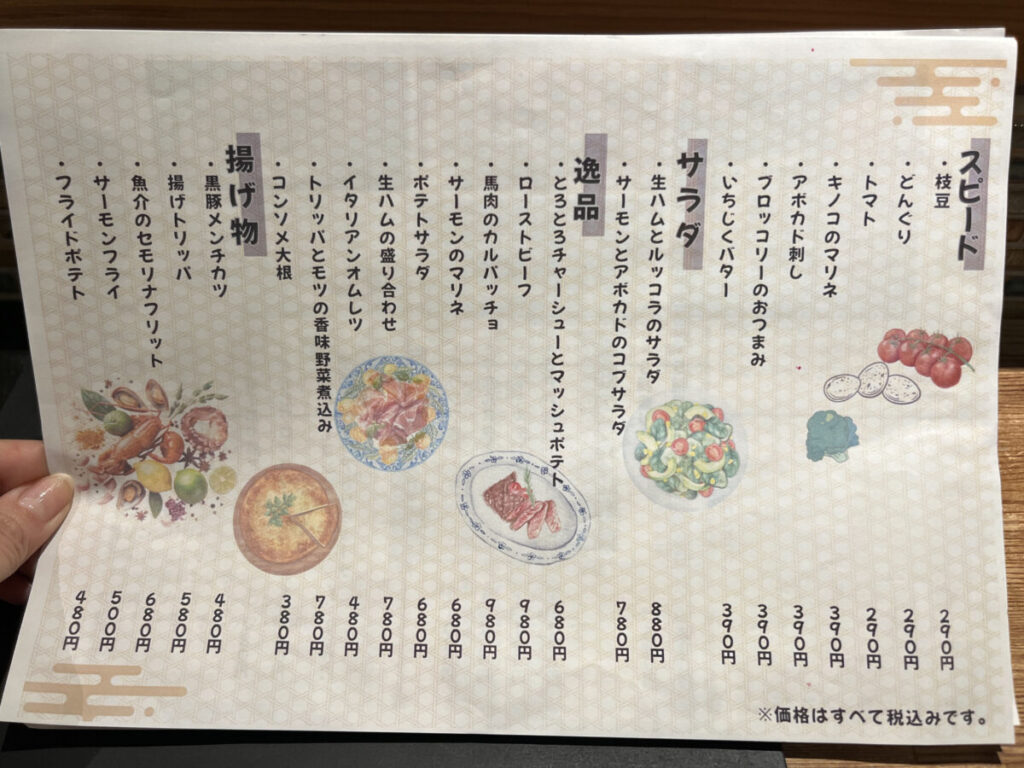 スピード
・枝豆 290円
・どんぐり 290円
・トマト 290円
・キノコのマリネ 390円
・アボカド刺し 390円
・ブロッコリーのおつまみ 390円
・いちじくバター 390円
サラダ
・生ハムとルッコラのサラダ 880円
・サーモンとアボカドのコブサラダ 780円
逸品
・とろとろチャーシューとマッシュポテト 680円
・ローストビーフ 980円
・馬肉のカルパッチョ 980円
・サーモンのマリネ 680円
・ポテトサラダ 680円
・生ハムの盛り合わせ 780円
・イタリアンオムレツ 480円
・トリッパとモツの香味野菜煮込み 780円
・コンソメ大根 380円
揚げ物
・黒豚メンチカツ 480円
・揚げトリッパ 580円
・魚介のセモリナフリット 680円
・サーモンフライ 500円
・フライドポテト 480円
※価格はすべて税込みです。